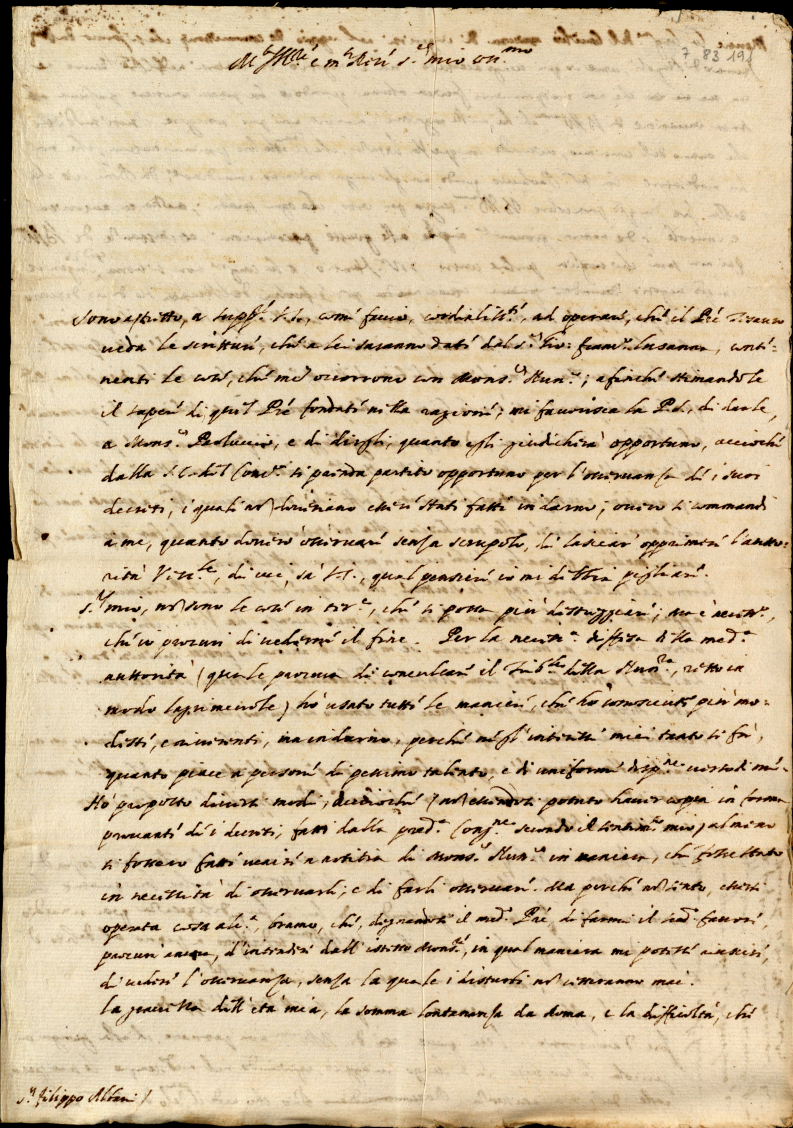 M.to Ill.re e m.to Rev.do S.r mio oss.mo
7 83 19
Sono astretto, a supp.r V.S., come faccio, cordialiss.te, ad operare, che il P.re Tirauro
veda le scritture, che a lei saranno date dal S.r Gio: Fran.co Lusanna, conti-
nenti le cose, che me occorrono con Mons.r Nun.o; afinche stimandole
il sapere di quel P.re fondate nella ragione, mi favorisca la P.S., di darle,
a Mons.r Paoluccio, e di dirgli, quanto egli giudichera opportuno, accioche
dalla S.C. del Conc.o si prenda partito opportuno per l'osservanza di i suoi
decreti, i quali no dovriano essere stati fatti in darno; overo si commandi
a me, quanto dovero osservare senza scrupolo, di lasciar opprimere l'autto-
rità Vesc.le, di cui, sà V.S., qual pensiere io mi debbia pigliare.
S.r mio, no sono le cose in ter.o, che si possa più ; ma è necess.o,
che io procuri di vederne il fine. Per la necess.a diffesa della med.a
auttorita (quale procura di conculcare il Trib.le della Nun.ra, retto in
modo lagrimevole) hò usato tutte le maniere, che hò conosciute più mo-
deste, e riverenti, ma indarno, perche negl'interessi miei tanto si fà,
quanto piace a persone di pessimo talento, e di uniforme disp.ne verso di me.
Hò proposto diversi modi, accioche (no essendosi potuto haver copia in forma
provante di i decreti, fatti dalla pred.a Cong.ne secondo il sentim.to mio) almeno
si fossero fatti venire a notitia di Mons.r Nun.o in maniera, che fosse stato
in necessità di osservarli, e di farli osservare. Ma perche no sento, essersi
operata cosa alc.a, bramo, che, degnandosi il med.o P.re, di farmi il sud.o favore,
procuri ancora, d'intendere dall'istesso Mons.re, in qual maniera mi potesse riuscire,
di vedere l'osservanza, senza la quale i disturbi no cesseranno mai.
La gravezza dell'età mia, la somma lontananza da Roma, e la difficoltà, che
S.r Filippo Aldani